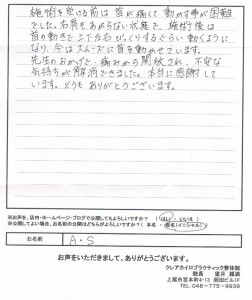 施術を受ける前は首が痛くて動かす事が困難
でした。右肩もあがらない状態で、施術後は
首の動きと上下左右びっくりするぐらい動くように
なり、今はスムーズに首を動かせています。
先生のおかげで痛みから開放され、不安な
気持ちが解消できました。本当に感謝して
います。どうもありがとうございます。
※お声を、店内・ホームページ・ブログで公開してもよろしいですか？（はい・いいえ）
※公開してよい場合、お名前の公開はどちらがよろしいですか？（本名・仮名(イニシャル)）
お名前 A・S
お声をいただきまして、ありがとうございます。
クレアカイロプラクティック整体院
院長 望月
上尾市宮本町4-3 岡田ビル1F
TEL:048-775-9939